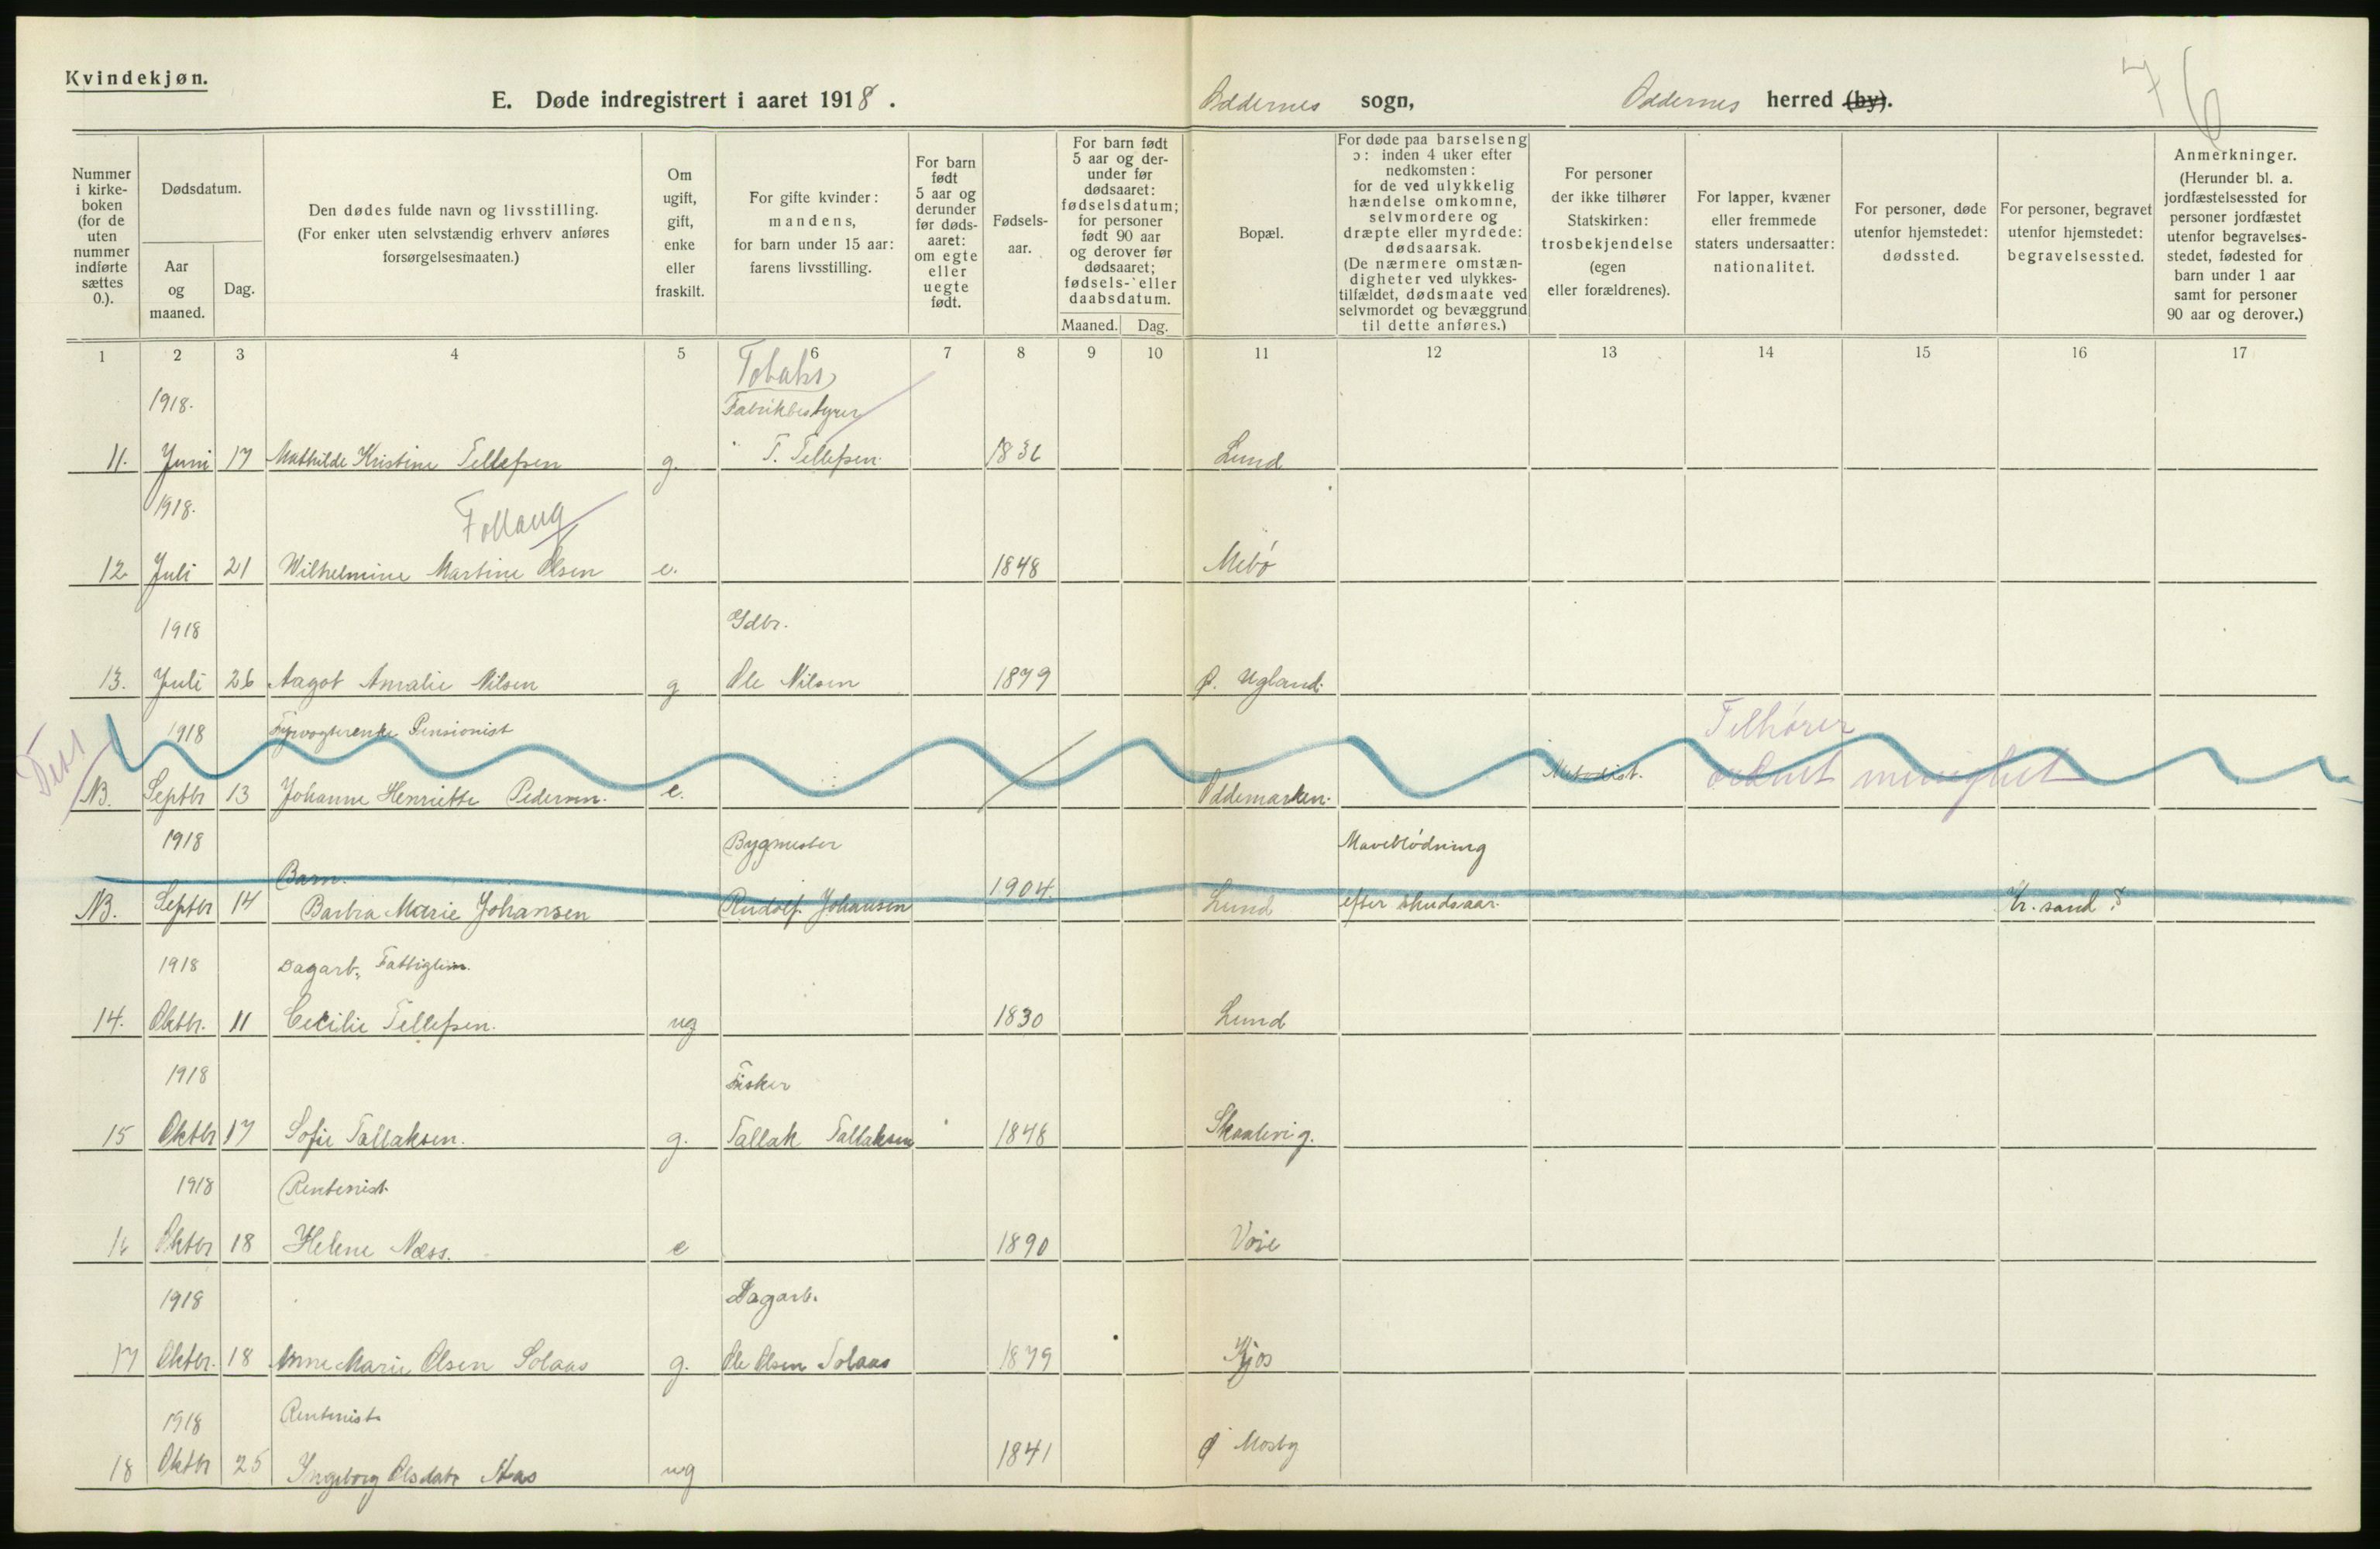 Kvindekjøn.
E. Døde indregistrert i aaret 1918.
Oddernes sogn,
Oddernes herred (by).
7
6
Nummer i kirke- boken (for de uten nummer indførte sættes 0.).
Dødsdatum.
Aar og maaned.
Dag.
Den dødes fulde navn og livsstilling.
(For enker uten selvstændig erhverv anføres forsørgelsesmaaten.)
Om ugift, gift, enke eller fraskilt.
For gifte kvinder: mandens, for barn under 15 aar: farens livsstilling.
For barn født 5 aar og derunder før døds- aaret: om egte eller uegte født.
Fødsels- aar.
For barn født 5 aar og der- under før dødsaaret: fødselsdatum; for personer født 90 aar og derover før dødsaaret; fødsels- eller daabsdatum.
Maaned. Dag.
Bopæl.
For døde paa barselseng ɔ: inden 4 uker efter nedkomsten: for de ved ulykkelig hændelse omkomne, selvmordere og dræpte eller myrdede: dødsaarsak. (De nærmere omstæn- digheter ved ulykkes- tilfældet, dødsmaate ved selvmordet og bevæggrund til dette anføres.)
For personer der ikke tilhører Statskirken: trosbekjendelse (egen eller forældrenes).
For lapper, kvæner eller fremmede staters undersaatter: nationalitet.
For personer, døde utenfor hjemstedet: dødssted.
For personer, begravet utenfor hjemstedet: begravelsessted.
Anmerkninger. (Herunder bl. a. jordfæstelsessted for personer jordfæstet utenfor begravelses- stedet, fødested for barn under 1 aar samt for personer 90 aar og derover.)
1 2 3 4 5 6 7 8 9 10 11 12 13 14 15 16 17
Tobaks
1918. Fabrikbestyrer
11. Juni 17 Mathilde Kristine Tellefsen g. T. Tellefsen 1836 Lund
1918.
12. Juli 21 Wilhelmine Martine Olsen e. 1848 Mebø
1918 Gdbr.
13. Juli 26 Aagot Amalie Nilsen g Ole Nilsen 1879 Ø. Ugland.
1918 Fyrvogterenke Pensionist Tilhører
NB. Septbr 13 Johanne Henriette Pedersen. e. Oddemarken. Metodist. ordnet menighet
1918 Bygmester Maveblødning
Barn.
NB. Septbr 14 Barbra Marie Johansen Rudolf Johansen 1904. Lund efter skudsaar. Kr.sand S
1918 Dagarb. Fattiglem.
14. Oktbr. 11 Cecilie Tellefsen. ug 1830 Lund
1918 Fisker
15 Oktbr 17 Sofie Tallaksen. g. Tallak Tallaksen 1848 Skaalevig.
1918 Rentenist
16 Oktbr 18 Helene Næss. e 1890 Voie
1918 Dagarb.
17 Oktbr. 18 Anne Marie Olsen Solaas g. Ole Olsen Solaas 1879 Kjos
1918 Rentenist
18 Oktbr 25 Ingeborg Olsdatr Aas ug 1841 Ø Mosby